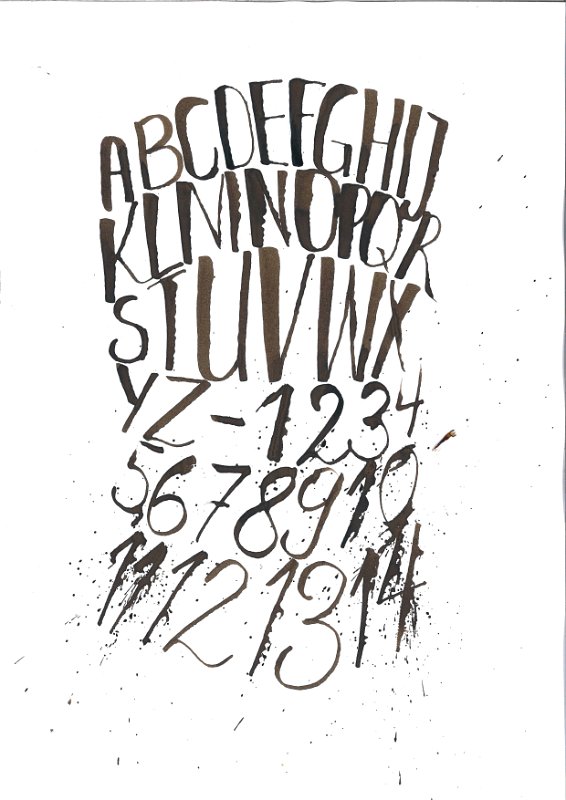 ABCDEFGHIJ
KLMNOPQR
STUVWX
YZ-1234
5678910
11121314